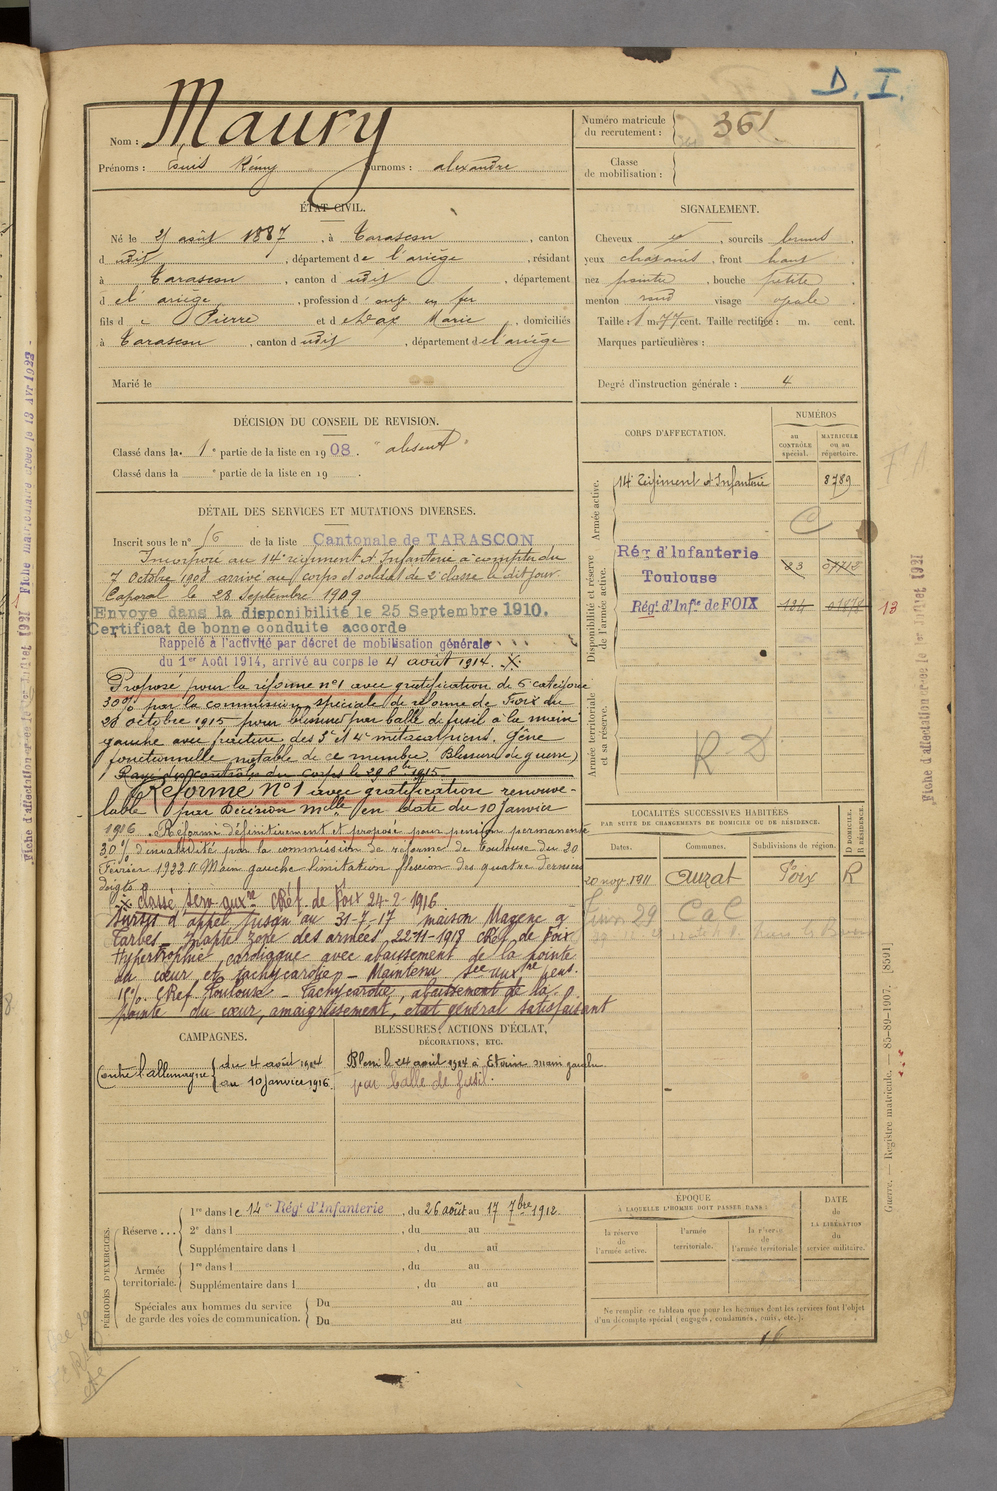 D. I.
Nom : Maury
Prénoms : Louis Rémy Surnoms : alexandre
Numéro matricule du recrutement : 361
Classe de mobilisation :
ÉTAT CIVIL.
Né le 21 août 1887, à Tarascon, canton
d udit, département de l'ariège, résidant
à Tarascon, canton d udit, département
d el'ariège, profession d
fils d e Pierre et d e Marie, domiciliés
à Tarascon, canton d udit, département d el'ariège
Marié le
SIGNALEMENT.
Cheveux et, sourcils bruns,
yeux chatains, front haut
nez pointu, bouche petite,
menton rond visage ovale
Taille : 1 m. 77 cent. Taille rectifiée : m. cent.
Marques particulières :
Degré d'instruction générale : 4
DÉCISION DU CONSEIL DE REVISION.
Classé dans la 1e partie de la liste en 1908. "absent"
Classé dans la e partie de la liste en 19 .
DÉTAIL DES SERVICES ET MUTATIONS DIVERSES.
Inscrit sous le n° 16 de la liste Cantonale de TARASCON
Incorporé au 14e régiment d'Infanterie à compter du
7 Octobre 1908 arrivé au corps et soldat de 2e classe le dit jour
Caporal le 28 Septembre 1909
Envoyé dans la disponibilité le 25 Septembre 1910.
Certificat de bonne conduite accordé
Rappelé à l'activité par décret de mobilisation générale
du 1er Août 1914, arrivé au corps le 4 août 1914. X
Proposé pour la réforme n°1 avec gratification de 6e catégorie
30% par la commission spéciale de réforme de Foix du
28 octobre 1915 pour blessure par balle de fusil à la main
gauche avec fracture des 3e et 4e métacarpiens. Gêne
fonctionnelle notable de ce membre. (Blessure de guerre)
Rayé des contrôles du corps le 29 8bre 1915
Réformé N°1 avec gratification renouve-
lable par décision mlle en date du 10 Janvier
1916. Réformé définitivement et proposé pour pension permanente
30% d'invalidité par la commission de réforme de Toulouse du 20
Février 1922 Main gauche limitation flexion des quatre derniers
doigts
X classé serv. auxre CRéf. de Foix 24-2-1916
Sursis d'appel jusqu'au 31-7-17 maison
Tarbes. Inapte zone des armées 22-11-1918 CRéf de Foix
Hypertrophie cardiaque avec abaissement de la pointe
du cœur et tachycardie - Maintenu sce auxre
10%. CRéf Toulouse - Tachycardie, abaissement de la
pointe du cœur, amaigrissement, état général satisfaisant
CORPS D'AFFECTATION.
NUMÉROS
au CONTRÔLE spécial.
MATRICULE ou au répertoire.
Armée active.
14e Régiment d'Infanterie 8789
Disponibilité et réserve de l'armée active.
Rég d'Infanterie
Toulouse
Régt d'Infie de FOIX
13
Armée territoriale et sa réserve.
R-D
LOCALITÉS SUCCESSIVES HABITÉES
PAR SUITE DE CHANGEMENTS DE DOMICILE OU DE RÉSIDENCE.
Dates. Communes. Subdivisions de région. D DOMICILE. R RÉSIDENCE.
20 nov. 1911 Auzat Foix R
CAMPAGNES.
Contre l'allemagne { du 4 août 1914
au 10 Janvier 1916.
BLESSURES, ACTIONS D'ÉCLAT,
DÉCORATIONS, ETC.
Blessé le 24 août 1914 à main gauche
par balle de fusil.
PÉRIODES D'EXERCICES.
Réserve... 1re dans le 14e Régt d'Infanterie, du 26 août au 17 7bre 1912
2e dans l , du au
Supplémentaire dans l , du au
Armée territoriale. 1re dans l , du au
Supplémentaire dans l , du au
Spéciales aux hommes du service de garde des voies de communication. Du au
Du au
ÉPOQUE
A LAQUELLE L'HOMME DOIT PASSER DANS :
la réserve de l'armée active.
l'armée territoriale.
la réserve de l'armée territoriale
DATE DE LA LIBÉRATION du service militaire.
Ne remplir ce tableau que pour les hommes dont les services font l'objet
d'un décompte spécial (engagés, condamnés, omis, etc.).
Fiche d'affectation créée le 1er Juillet 1921
Guerre. — Registre matricule. — 85-89-1907. [8591]
Fiche d'affectation créée le 1er Juillet 1921 Fiche matriculaire créée le 13 Avr 1923